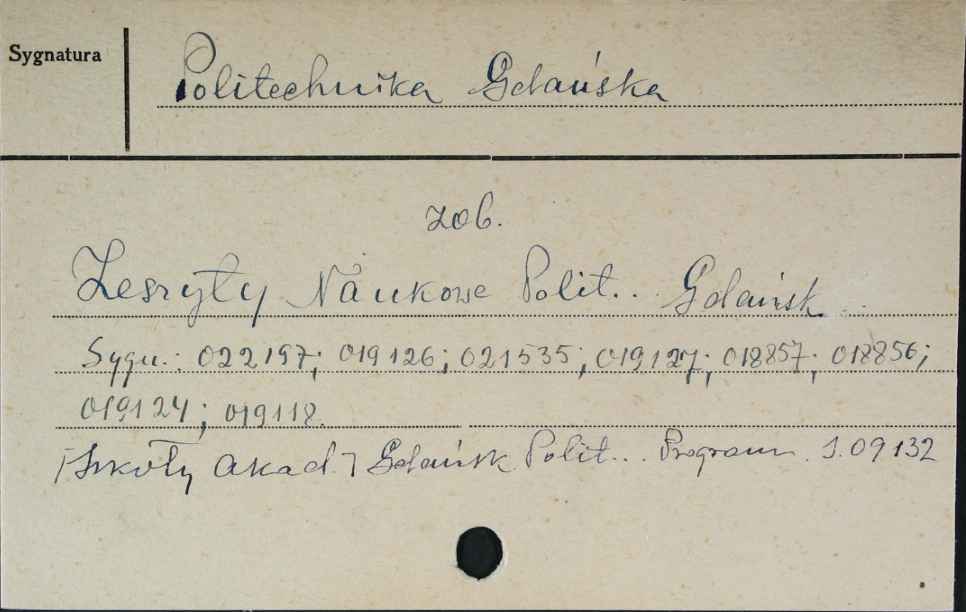 Sygnatura
Politechnika Gdańska
zob.
Zeszyty Naukowe Polit... Gdańsk...
Sygn.: 022197; 019126; 021535; 019127; 018857; 018856;
019124; 019118.
[Szkoły Akad.] Gdańsk Polit... Program. S.09132